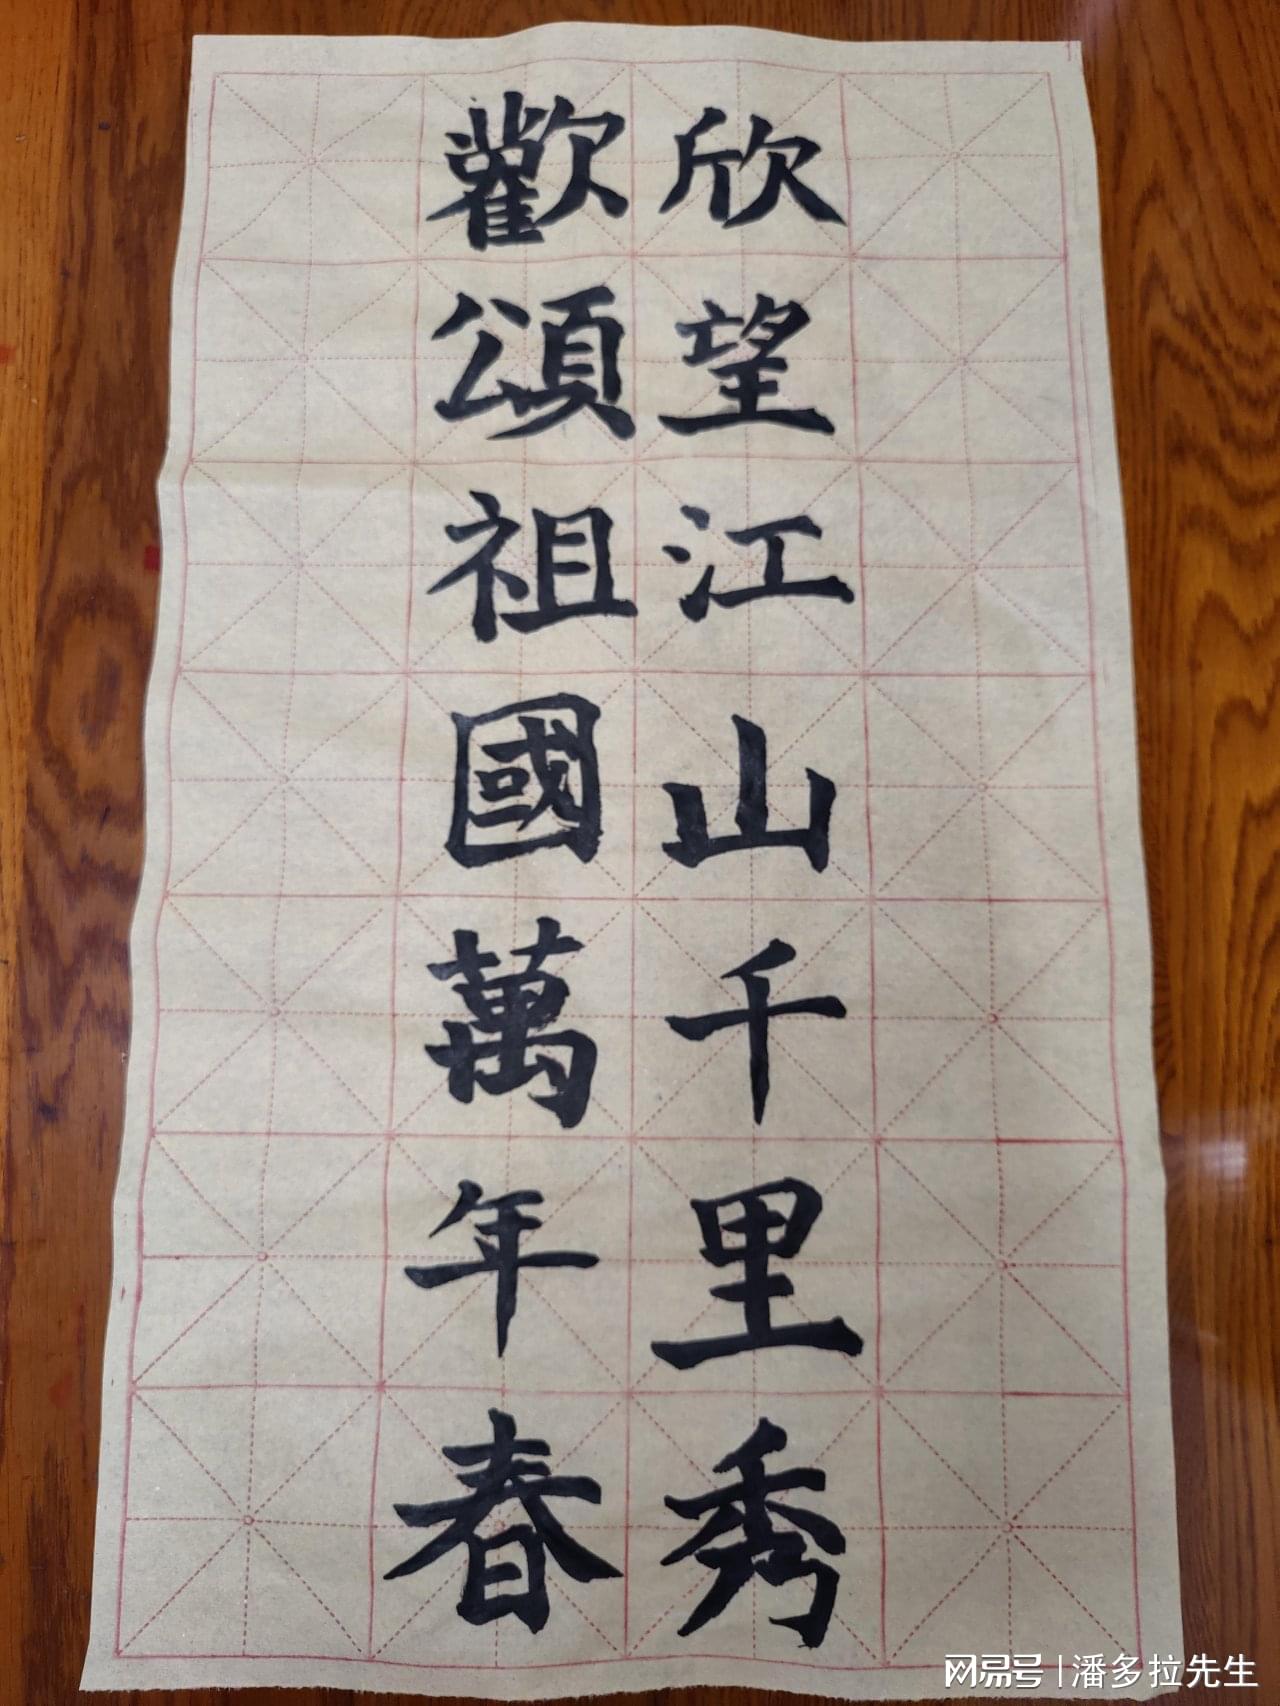 欣望江山千里秀
歡頌祖國萬年春
网易号 | 潘多拉先生